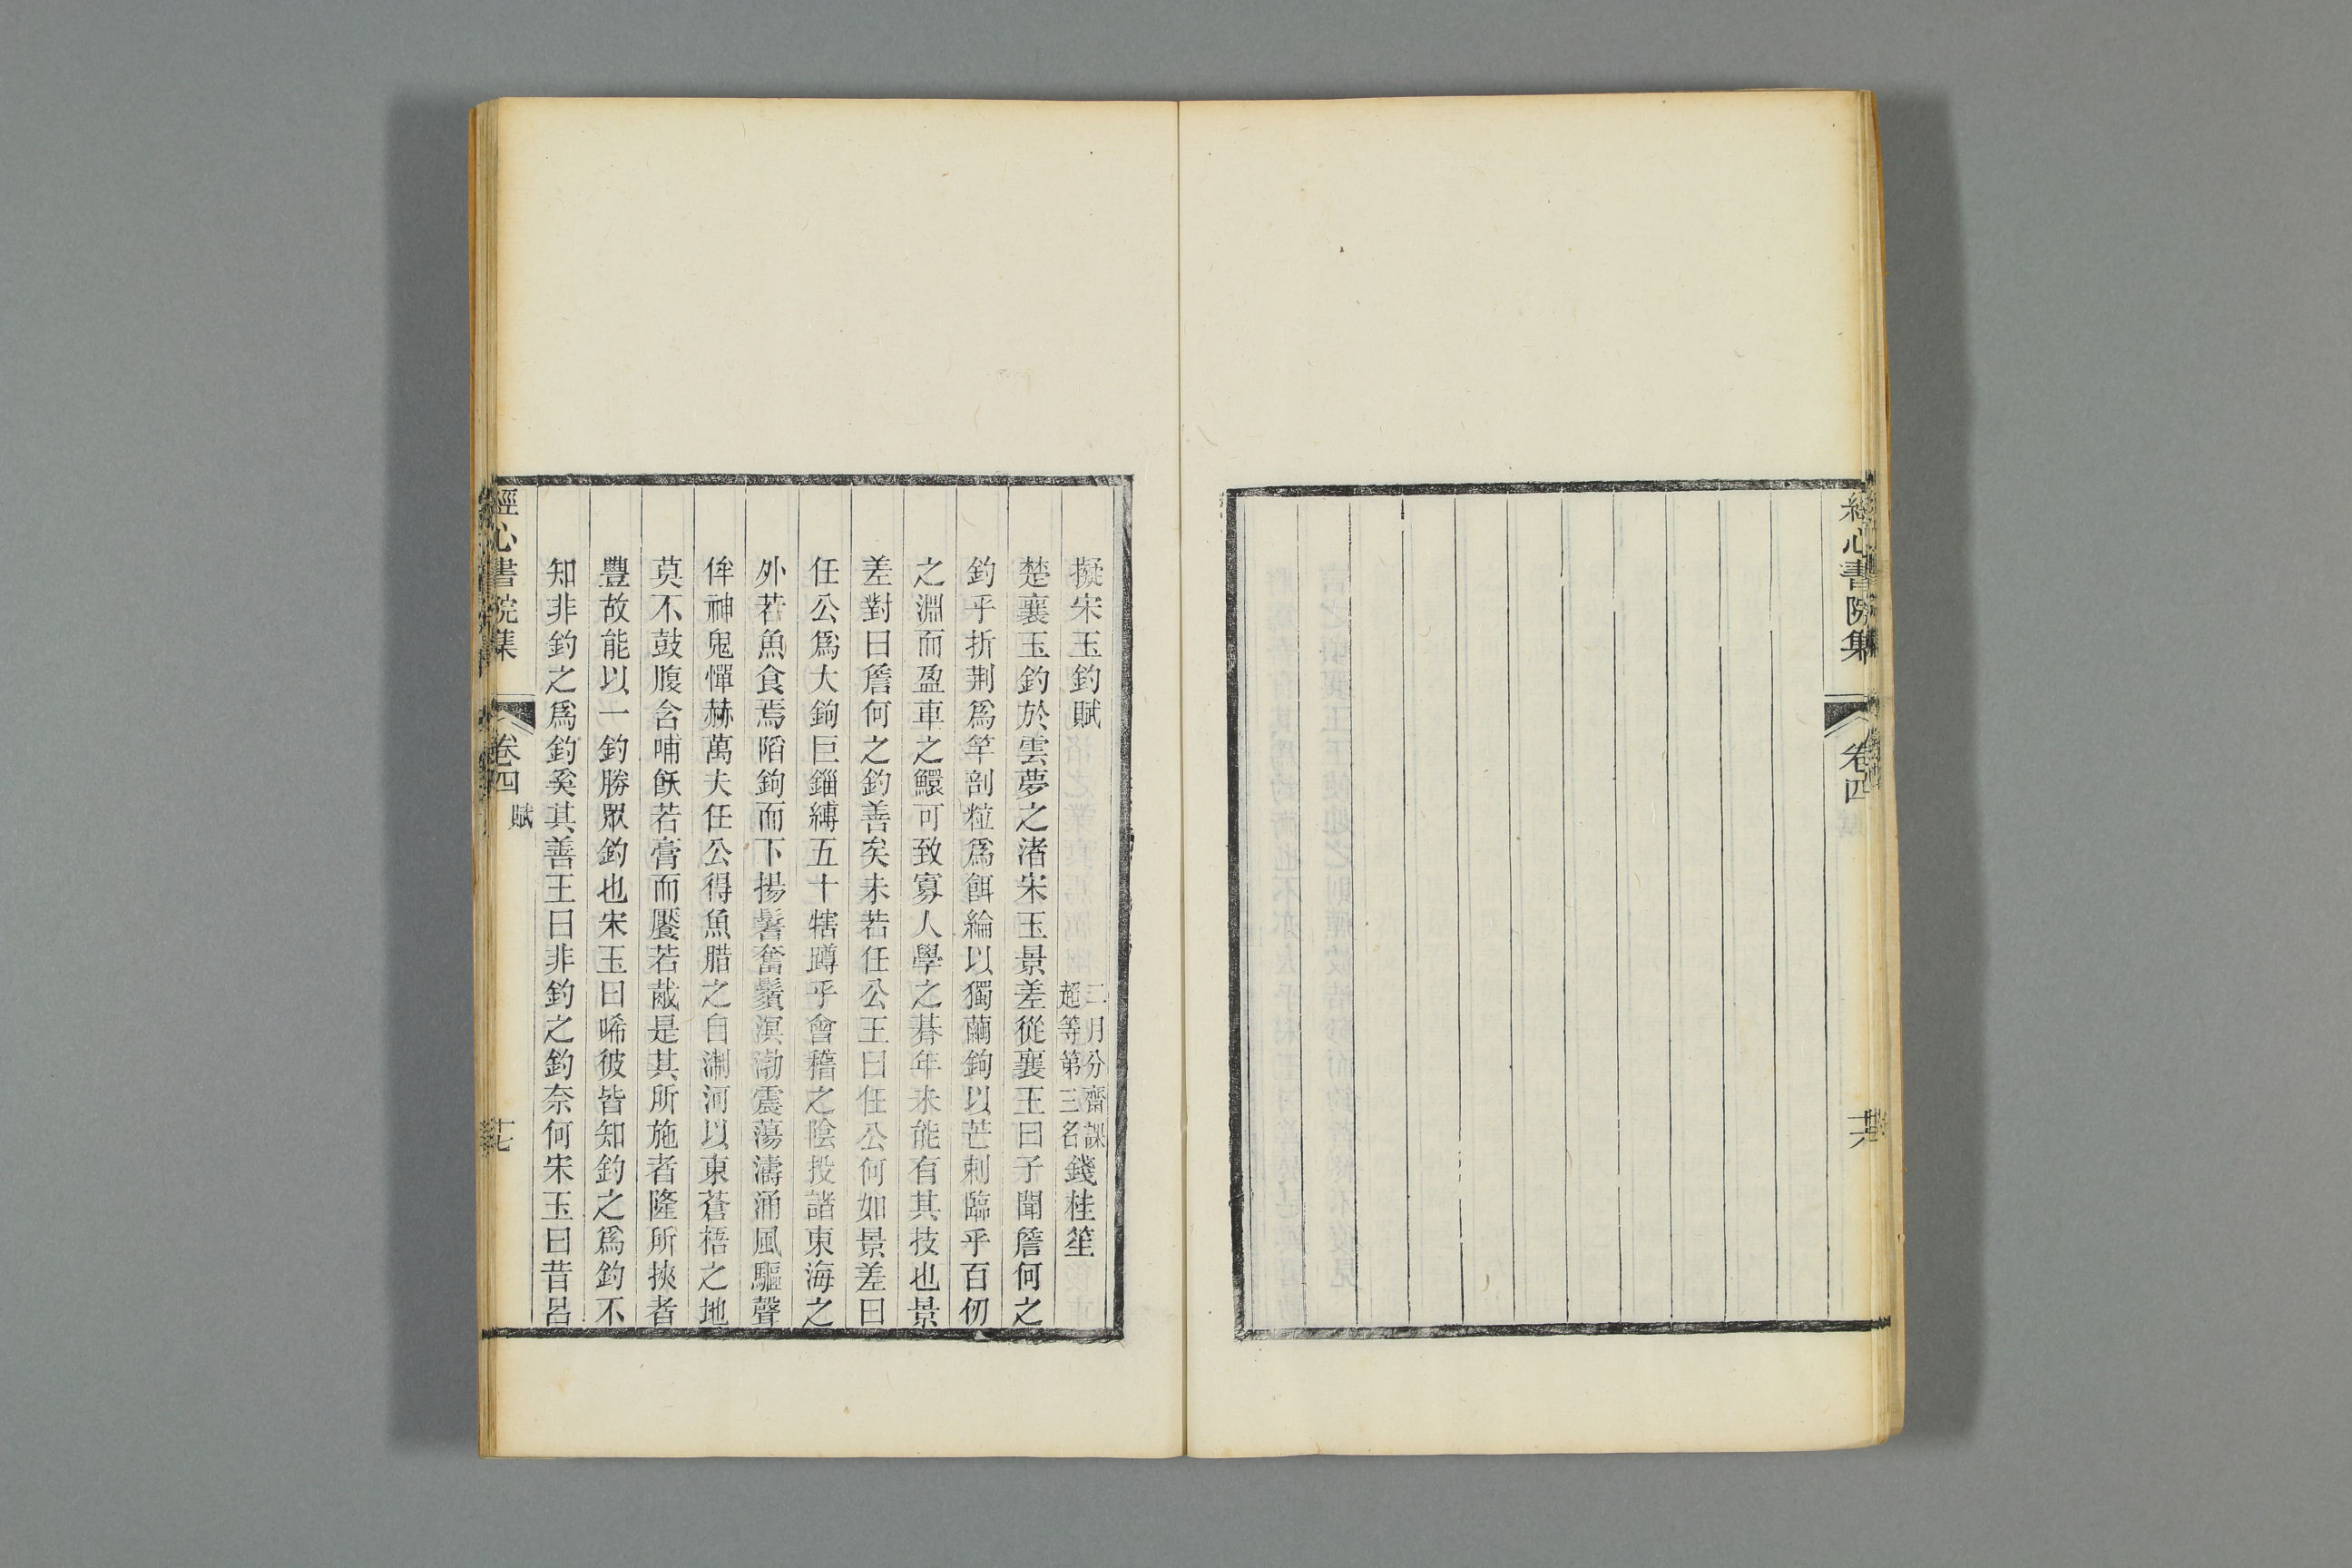 經心書院集
卷四
擬宋玉釣賦
二月分齋課
超等第三名
錢桂笙
楚襄王釣於雲夢之渚宋玉景差從襄王曰子聞詹何之
釣乎折荆爲竿剖粒爲餌綸以獨繭鉤以芒刺臨乎百仞
之淵而盈車之鱞可致寡人學之朞年未能有其技也景
差對曰詹何之釣善矣未若任公王曰任公何如景差曰
任公爲大鉤巨錙縳五十犗蹲乎會稽之陰投諸東海之
外若魚食焉陷鉤而下揚鬐奮鬚溟渤震蕩濤涌風驅聲
侔神鬼憚赫萬夫任公得魚腊之自淛河以東蒼梧之地
莫不鼓腹含哺飫若膏而饜若胾是其所施者隆所挾者
豐故能以一釣勝眾釣也宋玉曰唏彼皆知釣之爲釣不
知非釣之爲釣奚其善王曰非釣之釣奈何宋玉曰昔呂
經心書院集
卷四
賦
十七